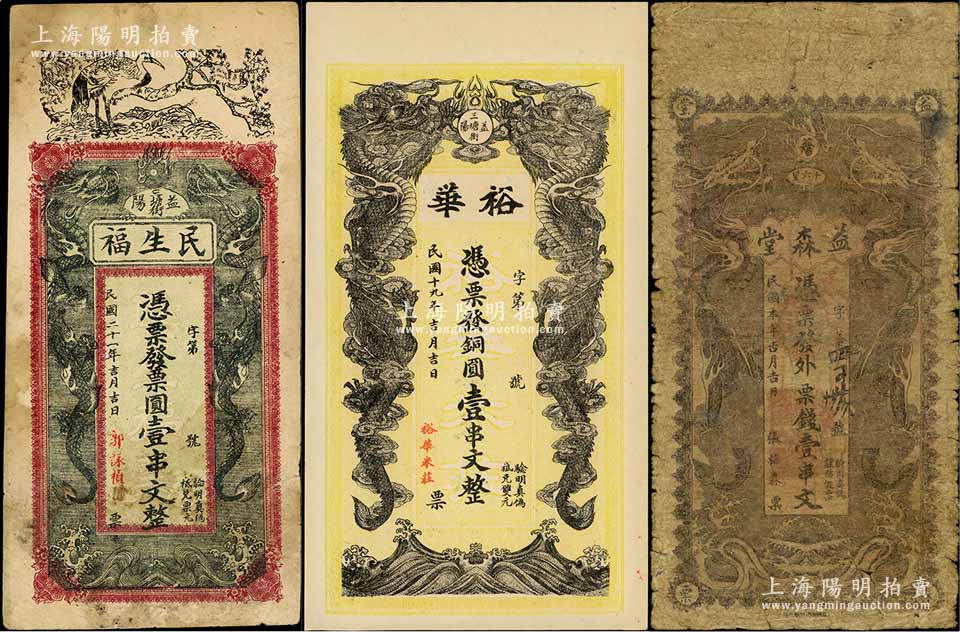 上海陽明拍賣
www.yangmingauction.com
益陽
三塘街
民生福
字第 號
憑票發票圓壹串文整
民國二十一年吉月吉日
票
驗明真偽
抵兌票元
益陽
三塘街
裕華
字第 號
憑票發銅圓壹串文整
民國十九年吉月吉日
裕華米莊
票
驗明真偽
上海陽明拍賣
www.yangmingauction.com
益
森
堂
字 號
憑票發外票錢壹串文
民國 年吉月吉日
票
上海陽明拍賣
www.yangmingauction.com